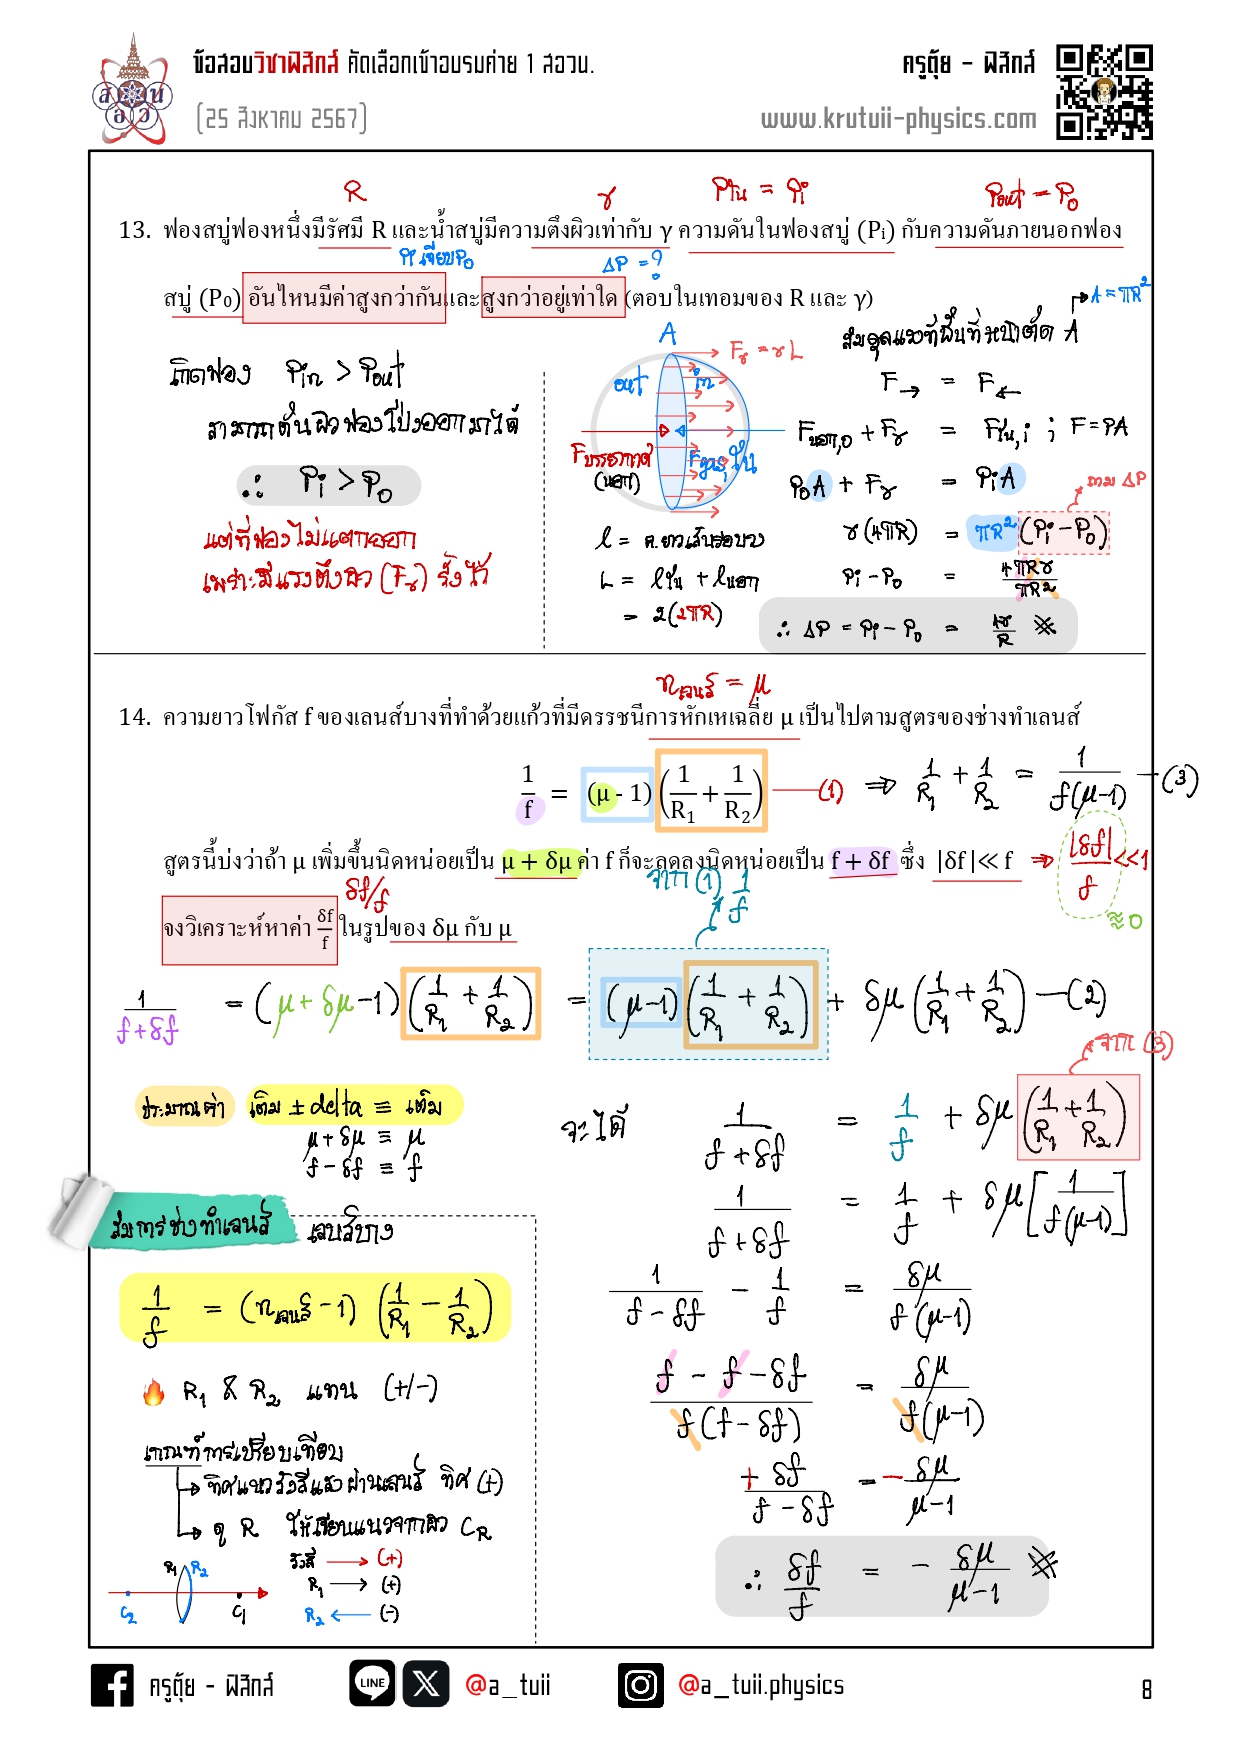 ข้อสอบวิชาฟิสิกส์ คัดเลือกเข้าอบรมค่าย 1 สอวน.
(25 สิงหาคม 2567)
ครูตุ้ย - ฟิสิกส์
www.krutuii-physics.com
ส อ ว น
R γ Pใน = Pi Pout = P₀
13. ฟองสบู่ฟองหนึ่งมีรัศมี R และน้ำสบู่มีความตึงผิวเท่ากับ γ ความดันในฟองสบู่ (Pᵢ) กับความดันภายนอกฟอง
Pi เทียบ P₀ ΔP = ?
สบู่ (P₀) อันไหนมีค่าสูงกว่ากันและสูงกว่าอยู่เท่าใด (ตอบในเทอมของ R และ γ)
A = πR²
เกิดฟอง Pin > Pout
สามารถดันผิวฟองโป่งออกมาได้
∴ Pi > P₀
แต่ที่ฟองไม่แตกออก
เพราะมีแรงตึงผิว (Fγ) รั้งไว้
A
Fγ = γL
out in
Fบรรยากาศ (นอก)
Fgas,ใน
l = ค.ยาวเส้นรอบวง
L = lใน + lนอก
= 2(2πR)
สมดุลแรงที่พื้นที่หน้าตัด A
F→ = F←
Fนอก,0 + Fγ = Fใน,i ; F = PA
P₀A + Fγ = PiA
ถาม ΔP
γ(4πR) = πR²(Pi - P₀)
Pi - P₀ = 4πRγ/πR²
∴ ΔP = Pi - P₀ = 4γ/R ※
nเลนส์ = μ
14. ความยาวโฟกัส f ของเลนส์บางที่ทำด้วยแก้วที่มีดรรชนีการหักเหเฉลี่ย μ เป็นไปตามสูตรของช่างทำเลนส์
1/f = (μ - 1)(1/R₁ + 1/R₂) —(1) ⇒ 1/R₁ + 1/R₂ = 1/f(μ-1) —(3)
สูตรนี้บ่งว่าถ้า μ เพิ่มขึ้นนิดหน่อยเป็น μ + δμ ค่า f ก็จะลดลงนิดหน่อยเป็น f + δf ซึ่ง |δf| ≪ f ⇒ |δf|/f <<1
≈ 0
δf/f
จาก (1) 1/f
จงวิเคราะห์หาค่า δf/f ในรูปของ δμ กับ μ
1/f+δf = (μ + δμ - 1)(1/R₁ + 1/R₂) = (μ-1)(1/R₁ + 1/R₂) + δμ(1/R₁ + 1/R₂) —(2)
จาก (3)
ประมาณค่า เติม ± delta ≡ เดิม
μ + δμ ≡ μ
f - δf ≡ f
จะได้ 1/f+δf = 1/f + δμ(1/R₁ + 1/R₂)
1/f+δf = 1/f + δμ[1/f(μ-1)]
1/f-δf - 1/f = δμ/f(μ-1)
f - f - δf/f(f-δf) = δμ/f(μ-1)
+δf/f-δf = -δμ/μ-1
∴ δf/f = -δμ/μ-1 ※
สมการช่างทำเลนส์ เลนส์บาง
1/f = (nเลนส์ - 1)(1/R₁ - 1/R₂)
R₁ & R₂ แทน (+/-)
เกณฑ์การเปรียบเทียบ
ทิศแนวรังสีแสงผ่านเลนส์ ทิศ (+)
ดู R ให้เขียนแนวจากผิว → C_R
R₁ R₂
C₂ C₁
รังสี → (+)
R₁ → (+)
R₂ ← (-)
ครูตุ้ย - ฟิสิกส์
LINE
@a_tuii
@a_tuii.physics
8